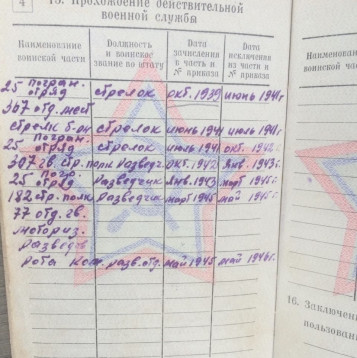 4
13. Прохождение действительной
военной службы
Наименование воинской части
Должность и воинское звание по штату
Дата зачисления в часть и № приказа
Дата исключения из части и № приказа
25 погран. отряд стрелок окт. 1939 июнь 1941г
367 отд. мест.
стрелк. б-он стрелок июнь 1941 июль 1941г
25 погран. отряд стрелок июль 1941 окт. 1942г
307 гв. стр. полк Разведч. окт. 1942 янв. 1943г.
25 погр. отряд Разведчик янв. 1943 март 1945г
182 стр. полк Разведчик март 1945 май 1945г
77 отд. гв.
моториз.
разведв.
рота Ком. разв. отд. май 1945 май 1946г.
Наименование
воинской части
16. Заключен
пользован